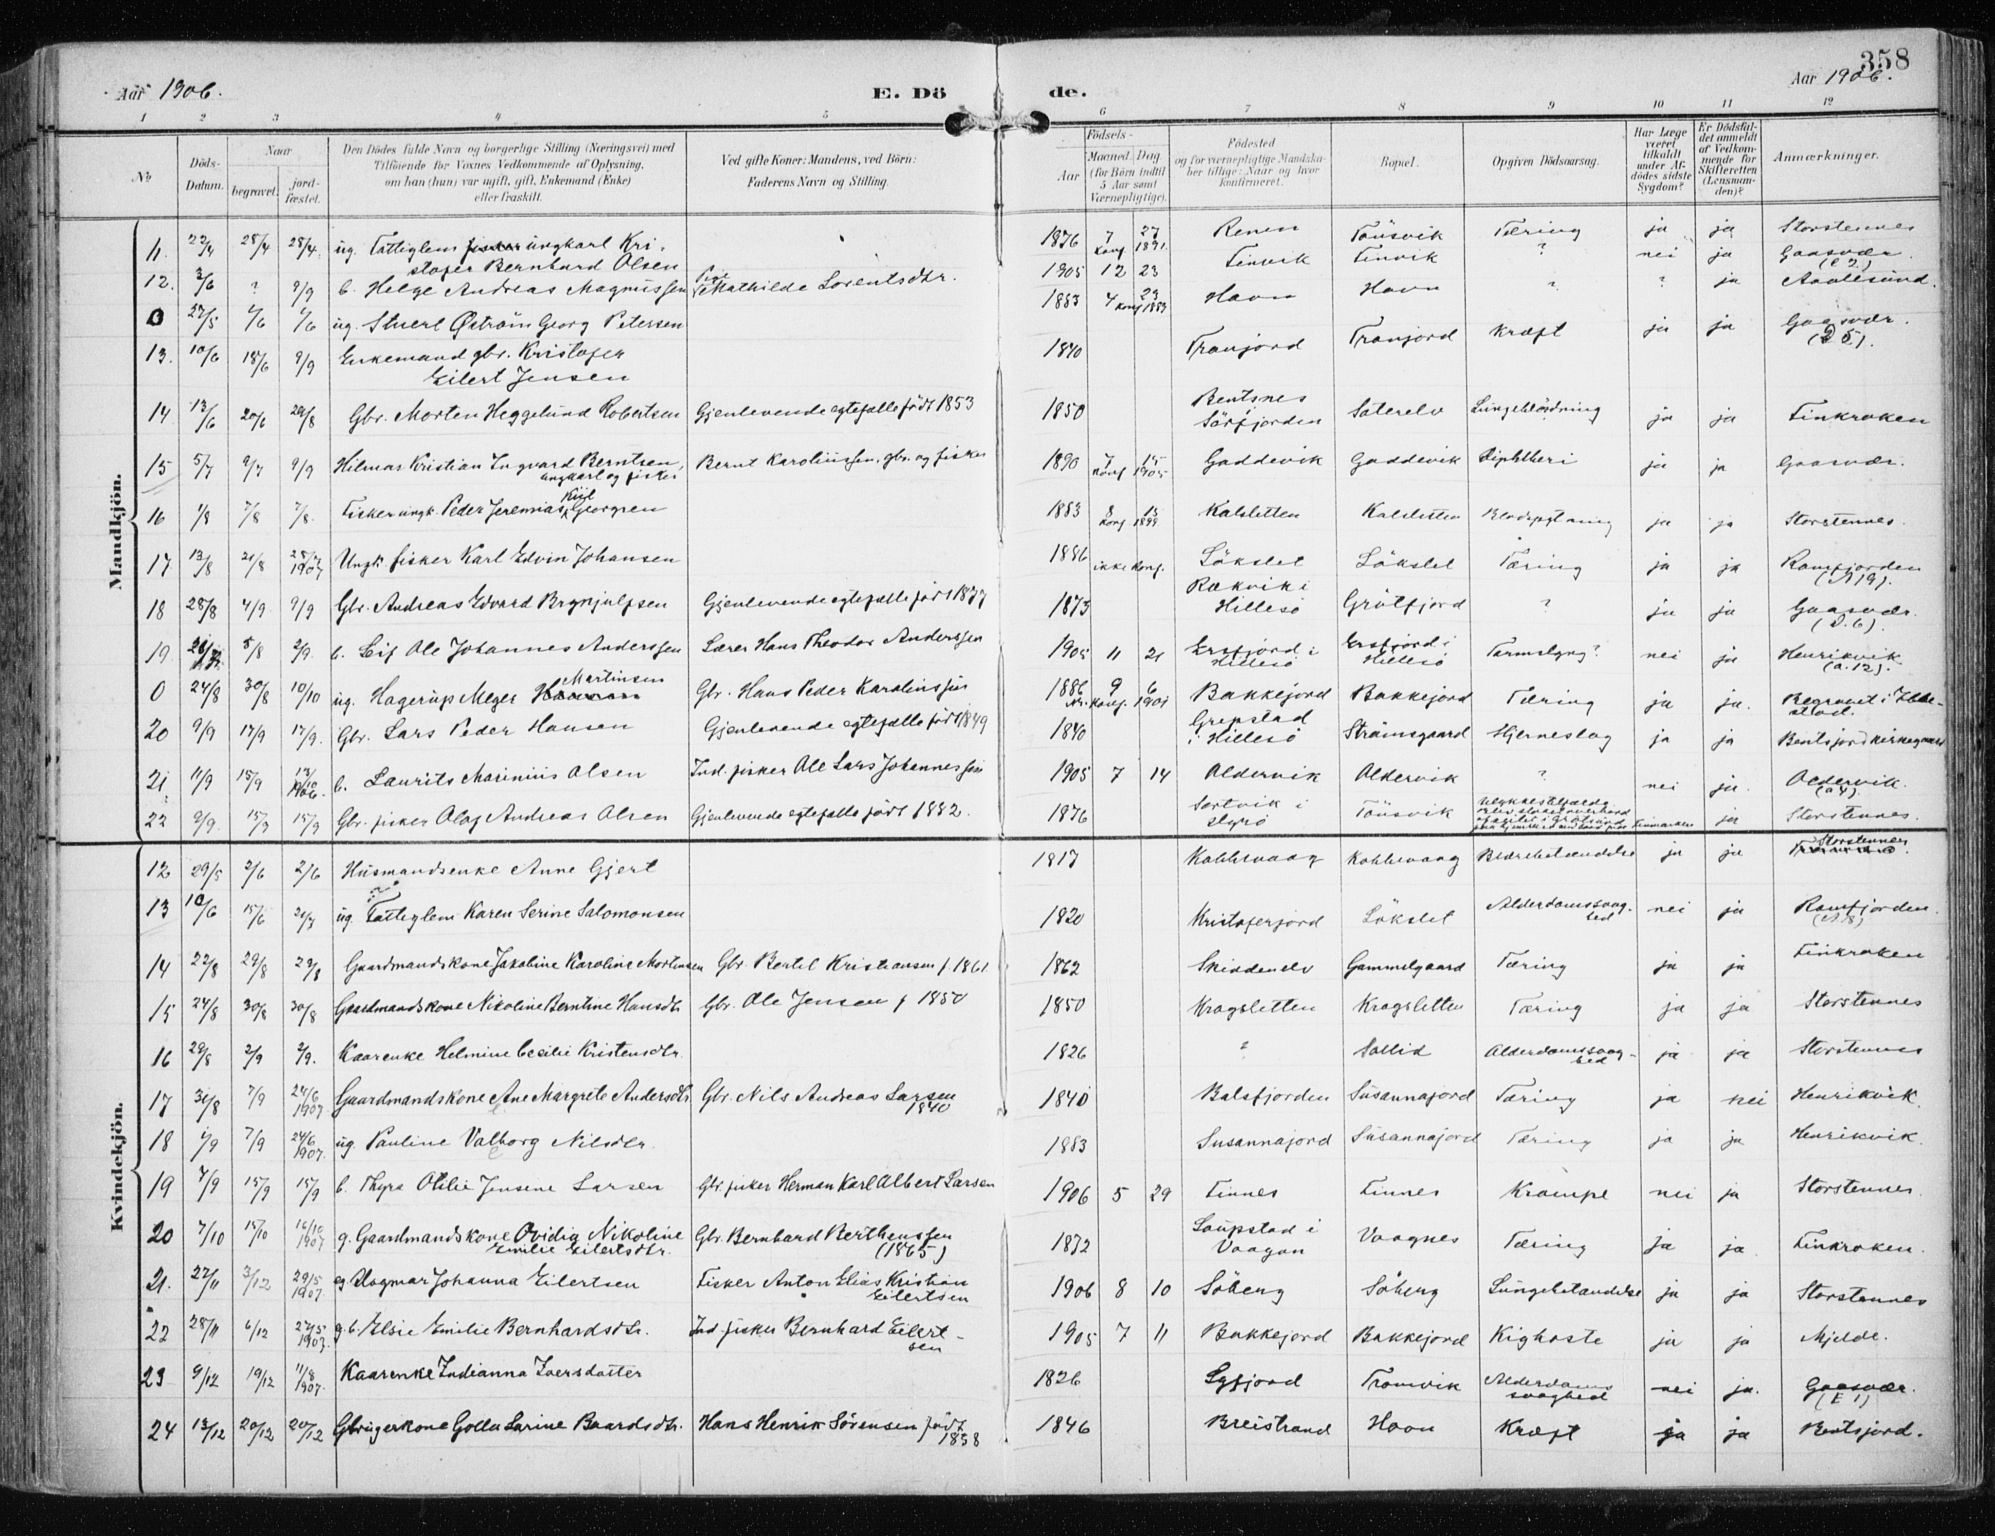 358
Aar 1906.
E. Dö
de.
Aar 1906.
1 2 3 4 5 6 7 8 9 10 11 12
No
Döds-Datum.
Naar
begravet.
jord-fæstet.
Den Dödes fulde Navn og borgerlige Stilling (Næringsvei) med
Tilföiende for Voxnes Vedkommende af Oplysning,
om han (hun) var ugift, gift, Enkemand (Enke)
eller fraskilt.
Ved gifte Koner: Mandens, ved Börn:
Faderens Navn og Stilling.
Födsels-
Aar
Maaned. Dag
(for Börn indtil
5 Aar samt
Værnepligtige).
Födested
og for værnepligtige Mandska-
ber tillige: Naar og hvor
konfirmeret.
Bopæl.
Opgiven Dödsaarsag.
Har Læge
været
tilkaldt
under Af-
dödes sidste
Sygdom?
Er Dödsfal-
det anmeldt
af Vedkom-
mende for
Skifteretten
(Lensman-
den)?
Anmærkninger.
Mandkjön.
11. 28/4 28/4 ug. Fattiglem ungkarl Kri- 1876 7 27 Renen Tönsvik Tæring ja ja Storstennes
stofer Bernhard Olsen Konf 1891.
12. 3/6 ? 9/9 b. Helge Andreas Magnussen Mathilde Lorentsdtr. 1905 12 23 Finvik Finvik ? nei ja Gaasvær.
0 27/5 4/6 4/6 ug. Stuert Öström Georg Petersen 1883 4 23 Havn Havn ? ? ja Aaalesund.
13. 10/6 18/6 9/9 Enkemand gbr. Kristofer 1840 Tranjord Tranjord Kræft ja ja Gaasvær.
Eilert Jensen
14 13/6 20/6 29/8 Gbr. Morten Heggelund Robertsen Gjenlevende egtefælle födt 1853 1850 Bentsnes Sörfjorden Saterelv Lungeblödning ja ja Finkroken
15 5/7 9/7 9/9 Hilmar Kristian Ingvard Berntsen, Bernt Karoliussen, gbr. og fisker 1890 7 15 Gaddevik Gaddevik Diphtheri ja ja Gaasvær.
ungkarl og fisker Konf 1905
16 1/8 7/8 7/8. Fisker ungk. Peder Jeremias Kiil Georgsen 1883 8 15 Kalsletten Kalsletten Blodspytning ja ja Storstennes.
Konf 1899
17 13/8 21/8 1907 Ungk. fisker Karl Edvin Johansen 1886 ikke konf. Lökslet Lökslet Tæring ja ja Ramfjorden
(A 19).
18 28/8 4/9 9/9 Gbr. Andreas Edvard Brynjulfsen Gjenlevende egtefælle född 1877 1873 Rækvik i Hillesö Grötfjord ? ja ja Gaasvær.
(D. 6).
19 5/8 2/9. b. Leif Ole Johannes Anderssen Lærer Hans Theodor Anderssen 1905 11 21 Ersfjord i Hillesö Ersfjord i Hillesö Tarmslyng? nei ja Henrikvik
(a. 12).
0 24/8 30/8 10/10 ug. Hagerup Meyer Martinsen Gbr. Hans Peder Karoliussen 1886 9 6 Bakkejord Bakkejord Tæring ja ja. Begravet i Ibbe-
konf. 1901 stad.
20 9/9 17/9 17/9. Gbr. Lars Peder Hansen Gjenlevende egtefælle född 1849 1840 Grepstad i Hillesö Strömsgaard Hjerneslag ja ja Bentsjord kirkegaard
21. 11/9 15/9 13/10 1906. b. Laurits Marinius Olsen Ind. fisker Ole Lars Johannessen 1905 7 14 Oldervik Oldervik ? nei ja. Oldervik.
(a 4).
22 9/9. 15/9 15/9 Gbr. fisker Olaf Andreas Olsen Gjenlevende egtefælle födt 1882. 1876 Sortvik i Tönsvik Finmarken ja Storstennes.
Kvindekjön.
12 29/5 2/6 2/6 Husmandsenke Anne Gjert 1817 Kobbevaag Kobbevaag ja ja Storstennes
13 10/6 15/6 21/7 ug. Fattiglem Karen Serine Salomonsen 1820 Kristoferjord Lökslet Alderdomssvag-hed nei ja Ramfjorden.
14 22/8 29/8 29/8 Gaardmandskone Jakobine Karoline Mortensen Gbr. Bertel Kristiansen f 1861 1862 Skiddenelv Gammelgaard Tæring ja ja Finkroken
15 24/8 30/8 30/8 Gaardmandskone Nikoline Berntine Hansdtr Gbr. Ole Jensen f 1850 1850 Kragsletten Kragsletten Tæring ja ja Storstennes
16 29/8 2/9 2/9. Kaarenke Helmine Cecilie Kristensdtr. 1826 ? Sollid Alderdomssvag-hed ja ja Storstennes
17 31/8 7/9 24/6 1907 Gaardmandskone Ane Margrete Andersdtr Gbr. Nils Andreas Larsen 1840 1840 Balsfjorden Susannajord Tæring ja nei Henrikvik
18 1/9 7/9 24/6 1907. ug. Pauline Valborg Nilsdtr. 1883 Susannajord Susannajord Tæring ja ja Henrikvik.
19 7/9 15/9 15/9 b. Thyra Otilie Jensine Larsen Gbr. fisker Herman Karl Albert Larsen 1906 5 29 Finnes Finnes Krampe nei ja Storstennes
20 7/10 15/10 16/10 1907 g. Gaardmandskone Ovidia Nikoline Gbr. Bernhard Berthenssen 1872 Laupstad i Vaagan Vaagnes Tæring ja ja Finkroken.
Emilie Eilertsdtr. (1865)
21. 27/11 3/12 29/5 1907. eg. Dagmar Johanna Eilertsen Fisker Anton Elias Kristian Eilertsen 1906 8 10 Söberg Söberg Lungebetændelse ja ja Storstennes
22 28/11 6/12 27/5 1907. g. b. Elsie Emilie Bernhardsdtr. Ind. fisker Bernhard Eilert-sen 1905 7 11 Bakkejord Bakkejord Kighoste ja ja Mjelde.
23 9/12 19/12 11/8 1907. Kaarenke Indianna Iversdatter 1826 Lyfjord Tromvik Alderdoms svaghed nei ja. Gaasvær.
(E 1)
24 13/12 20/12 20/12 Gbrugerkone Golla Larine Baardsdtr. Hans Henrik Sörensen född 1858 1846 Breistrand Havn Kræft ja ja Bentsjord.